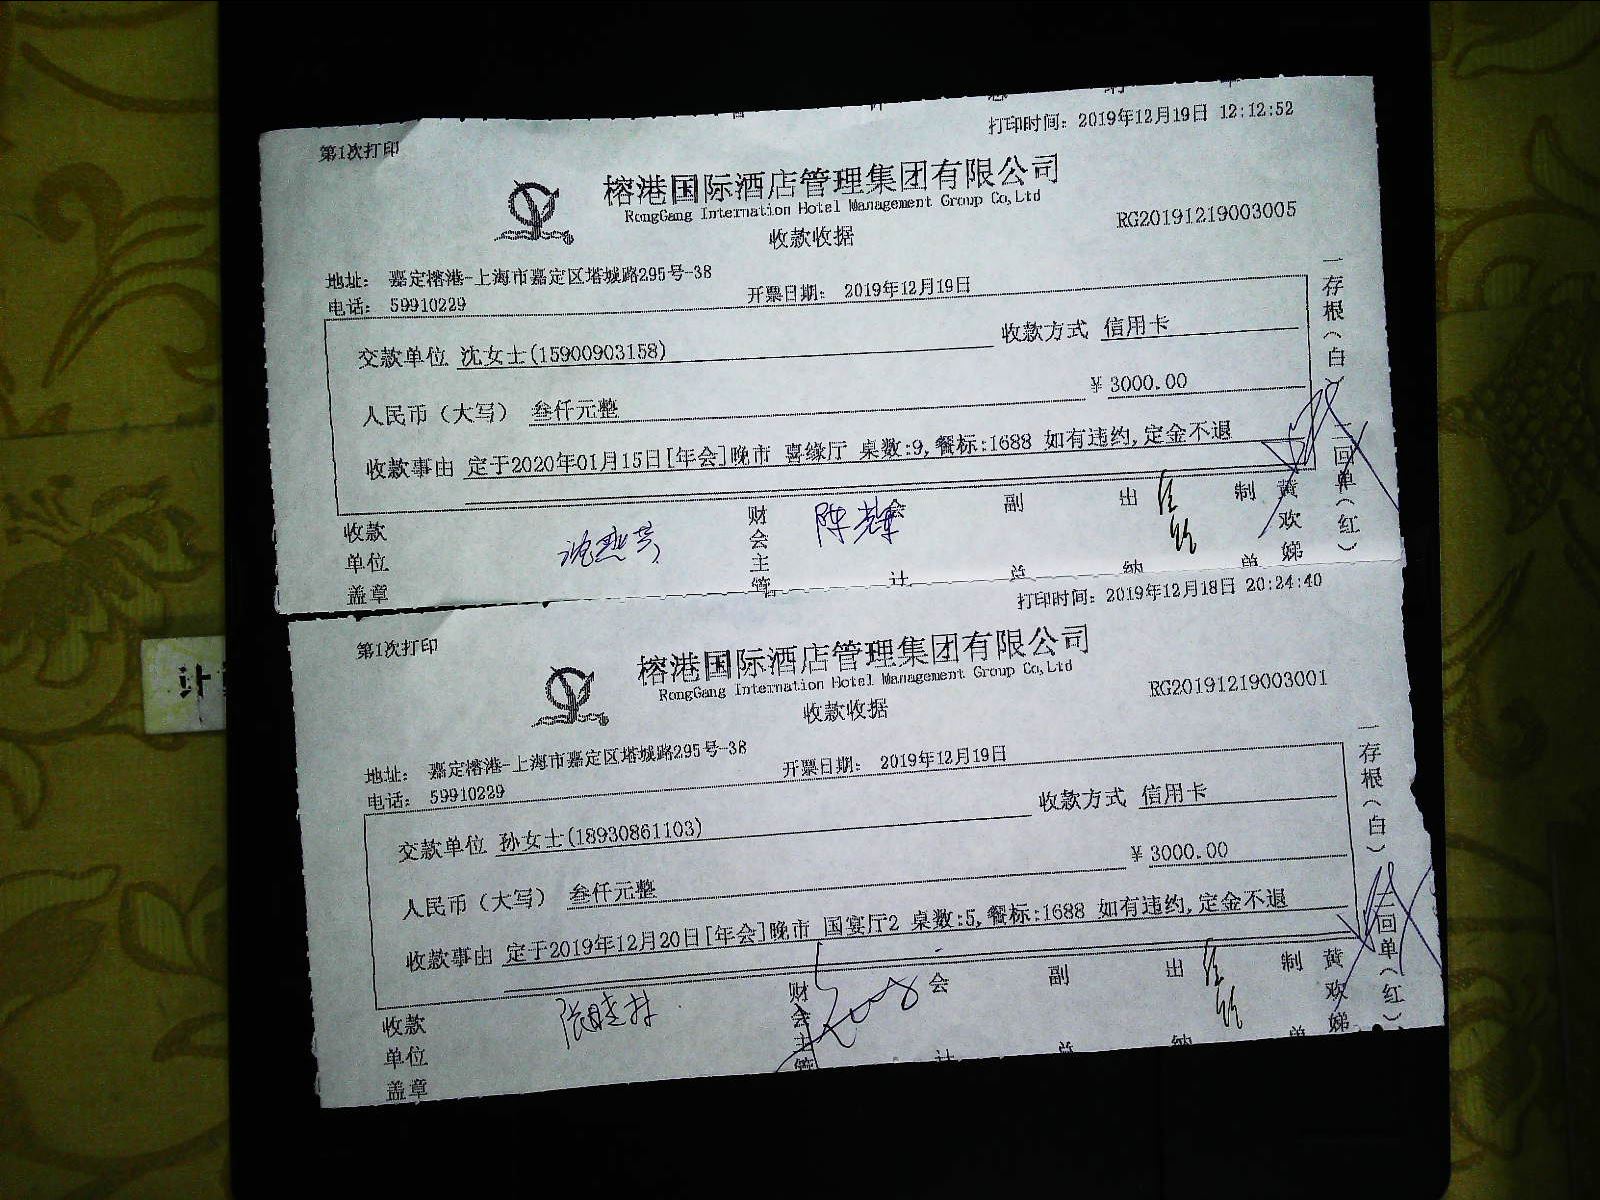 打印时间：2019年12月19日 12:12:52
第1次打印
榕港国际酒店管理集团有限公司
RongGang Internation Hotel Management Group Co,Ltd
RG20191219003005
收款收据
地址： 嘉定榕港-上海市嘉定区塔城路295号-38
电话： 59910229
开票日期： 2019年12月19日
交款单位 沈女士(15900903158)
收款方式 信用卡
人民币（大写） 叁仟元整
¥ 3000.00
收款事由 定于2020年01月15日[年会]晚市 喜缘厅 桌数:9,餐标:1688 如有违约,定金不退
一存根（白） 二回单（红）
收款单位盖章
财会主管
陈辉
会计
副总
出纳
制单
黄欢娣
打印时间：2019年12月18日 20:24:40
第1次打印
榕港国际酒店管理集团有限公司
RongGang Internation Hotel Management Group Co,Ltd
RG20191219003001
收款收据
地址： 嘉定榕港-上海市嘉定区塔城路295号-38
电话： 59910229
开票日期： 2019年12月19日
交款单位 孙女士(18930861103)
收款方式 信用卡
人民币（大写） 叁仟元整
¥ 3000.00
收款事由 定于2019年12月20日[年会]晚市 国宴厅2 桌数:5,餐标:1688 如有违约,定金不退
一存根（白） 二回单（红）
收款单位盖章
财会主管
会计
副总
出纳
制单
黄欢娣
计